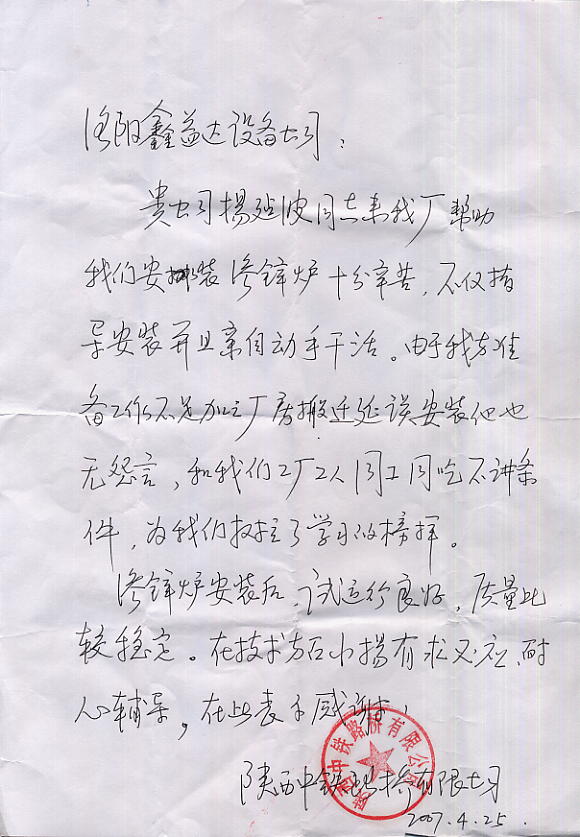 洛阳鑫益达设备公司:
贵公司杨延波同志来我厂帮助
我们安装渗锌炉十分辛苦,不仅指
导安装并且亲自动手干活。由于我方准
备工作不足加之厂房搬迁延误安装他也
无怨言,和我们工厂工人同工同吃不讲条
件,为我们树立了学习的榜样。
渗锌炉安装后,试运行良好,质量比
较稳定。在技术方面小杨有求必应,耐
心辅导,在此表示感谢!
陕西中铁路桥有限公司
2007.4.25.
陕西中铁路桥有限公司